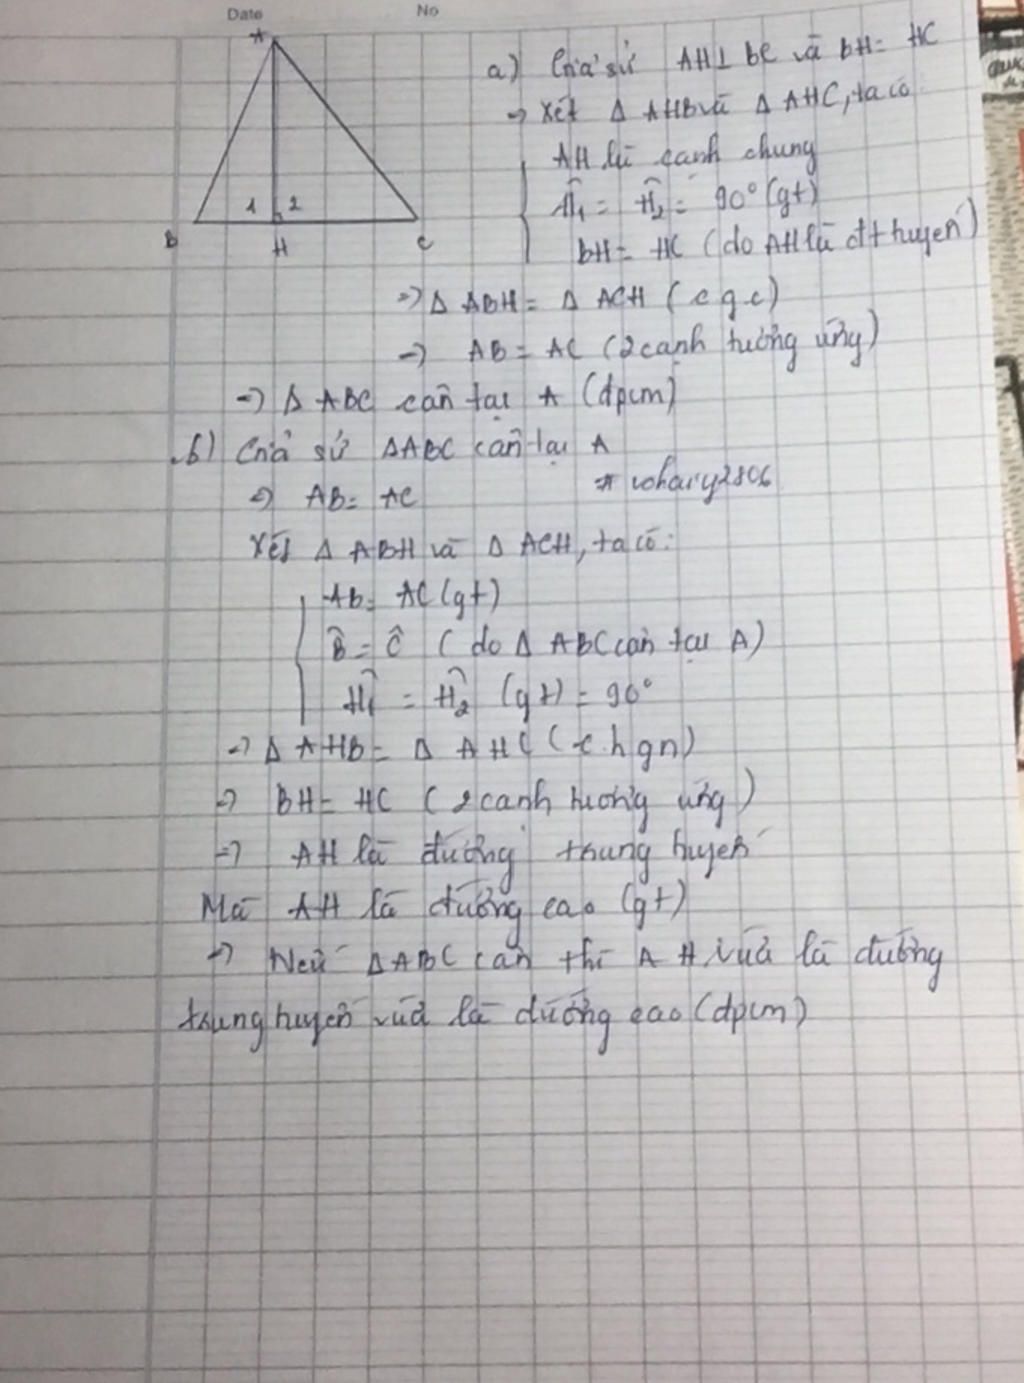 Date No
A
1 2
B H C
a) Giả sử AH⊥BC và BH= HC
→ Xét Δ AHB và Δ AHC, ta có
AH là cạnh chung
Ĥ₁ = Ĥ₂ = 90° (gt)
BH= HC (do AH là đt tuyến)
=> Δ ABH= Δ ACH (c g.c)
=> AB= AC (2 cạnh tương ứng)
=> Δ ABC cân tại A (đpcm)
b) Giả sử ΔABC cân tại A
=> AB= AC
Xét Δ ABH và Δ ACH, ta có:
AB= AC (gt)
B̂ = Ĉ ( do Δ ABC cân tại A)
Ĥ₁ = Ĥ₂ (gt) = 90°
=> Δ AHB= Δ AHC (c.h gn)
=> BH= HC ( 2 cạnh tương ứng )
=> AH là đường trung tuyến
Mà AH là đường cao (gt)
=> Nếu ΔABC cân thì AH vừa là đường
trung tuyến vừa là đường cao (đpcm)